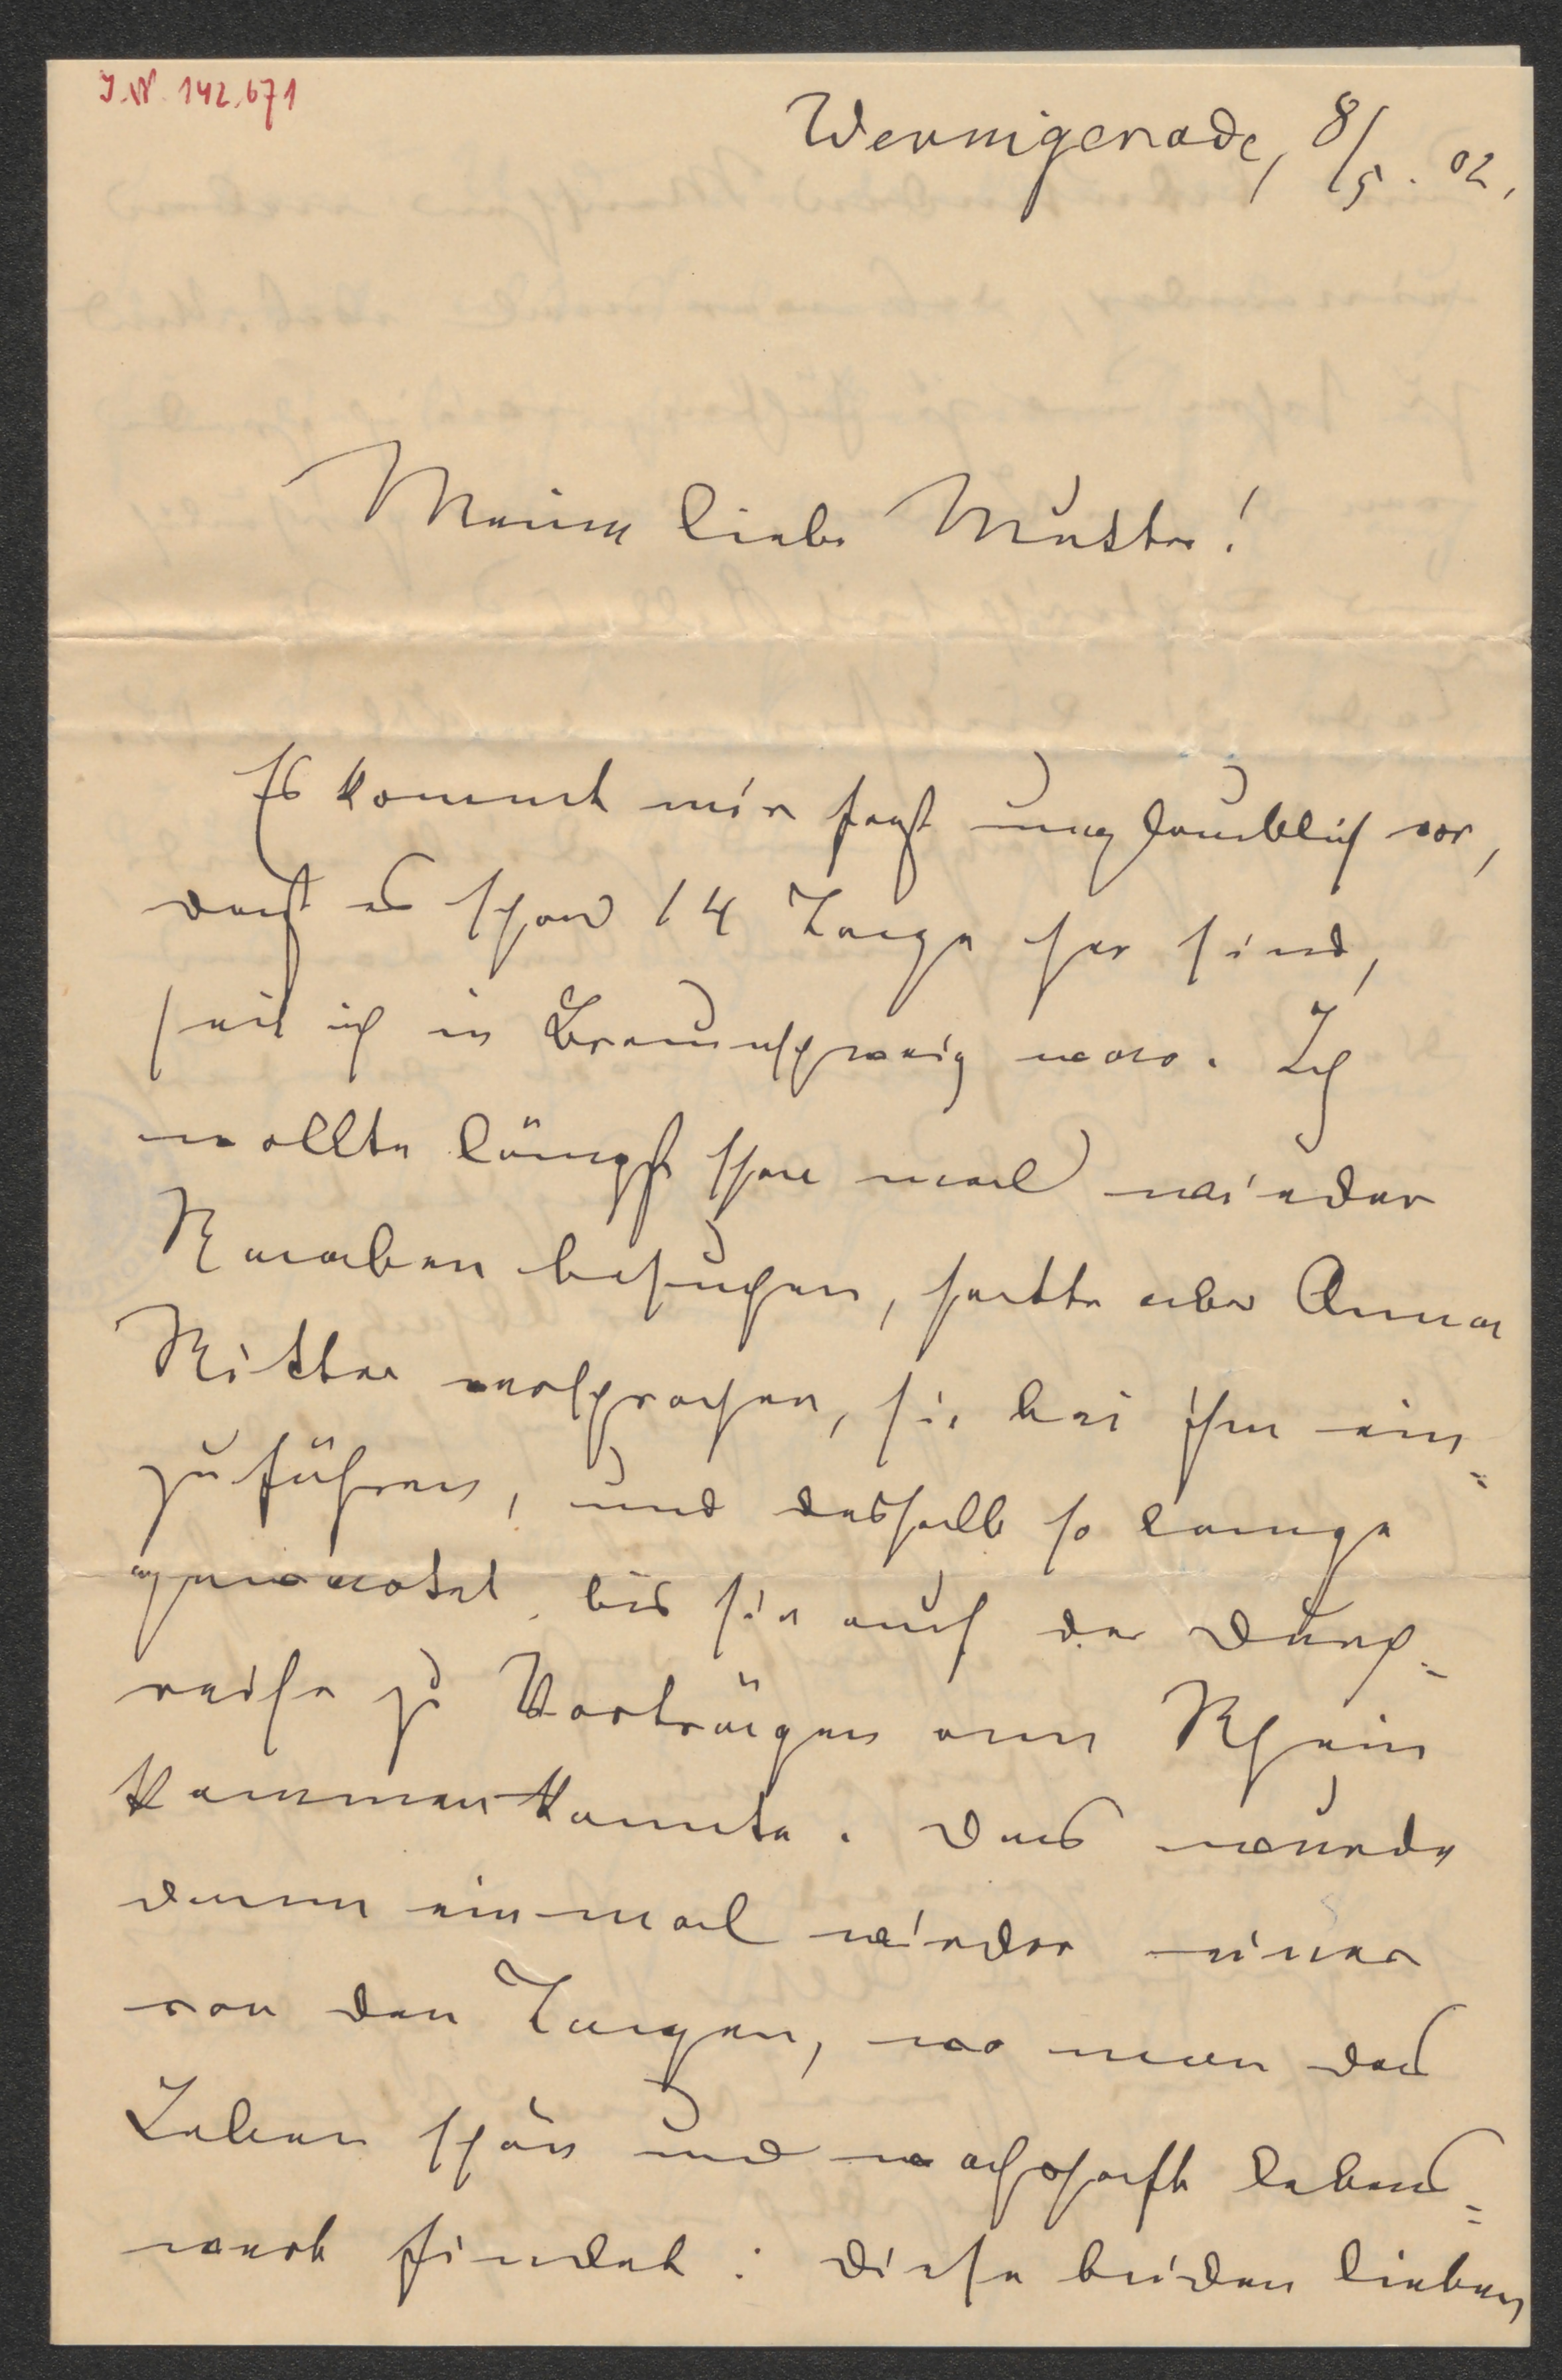 I.N. 142.671
Wernigerode, 8/5. 02.
Meine liebe Mutter!
Es kommt mir fast unglaublich vor,
daß es schon 14 Tage her sind,
seit ich in Braunschweig war. Ich
wollte längst schon mal wieder
Raaben besuchen, hatte aber Anna
Ritter versprochen, sie bei ihm ein=
zuführen, und deshalb so lange
gewartet, bis sie auf der Durch=
reise zu Vorträgen am Rhein
kommen konnte. Das wurde
dann einmal wieder einer
von den Tagen, wo man das
Leben schön und wahrhaft lebens=
wert findet: diese beiden lieben